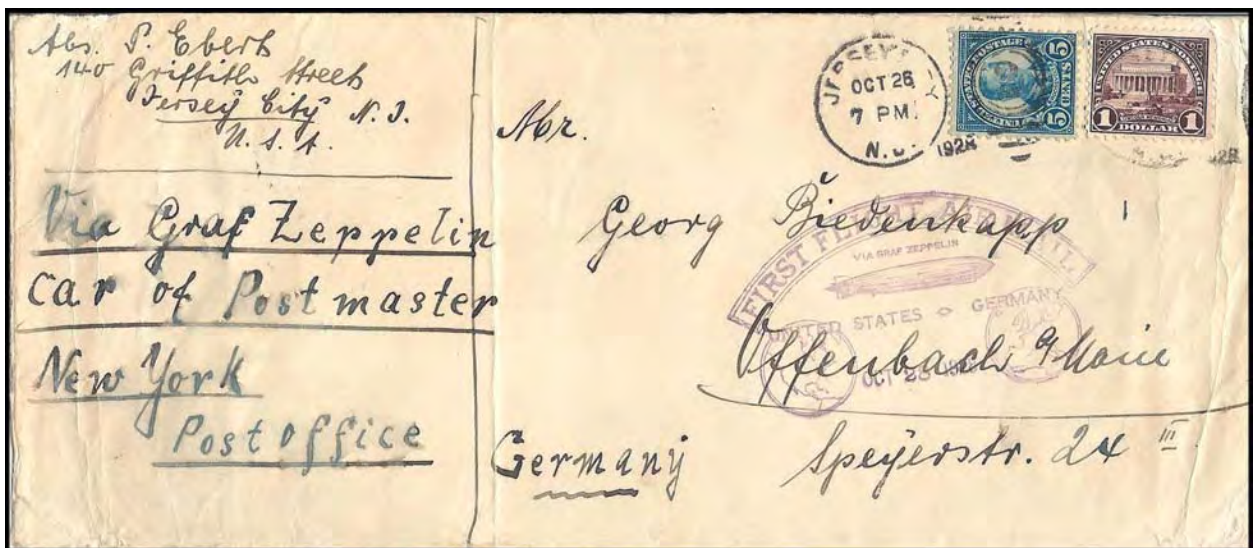 Abs. P. Ebert
140 Griffith Street
Jersey City N.J.
U.S.A.
Via Graf Zeppelin
car of Postmaster
New York
Post office
JERSEY CITY
OCT 26
7 PM.
N.J.
1928
UNITED STATES POSTAGE
5 CENTS 5
UNITED STATES POSTAGE
1 DOLLAR 1
Mr.
Georg Biedenkapp
FIRST FLIGHT AIR MAIL
VIA GRAF ZEPPELIN
UNITED STATES GERMANY
OCT 28 1928
Offenbach a/Main
Germany
Speyerstr. 24 III